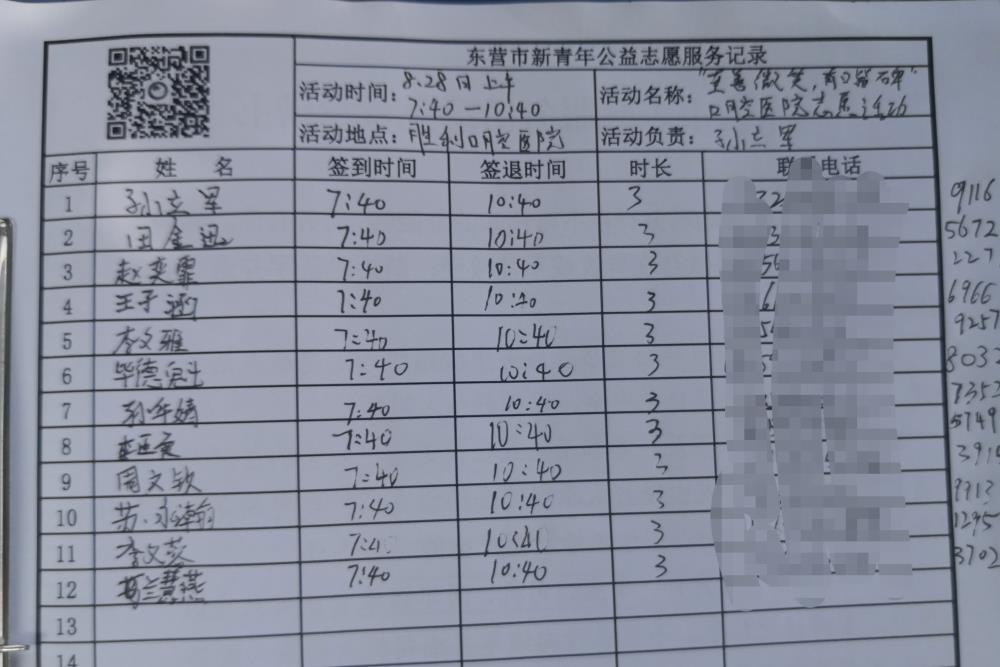 东营市新青年公益志愿服务记录
活动时间：8.28日上午 7:40—10:40
活动名称："至善微笑，有口皆碑" 口腔医院志愿活动
活动地点：胜利口腔医院 活动负责：孙立军
序号 姓 名 签到时间 签退时间 时长 电话
1 孙立军 7:40 10:40 3 9116
2 田金迅 7:40 10:40 3 5672
3 赵奕霏 7:40 10:40 3 227
4 王子涵 7:40 10:40 3 6966
5 李文雅 7:40 10:40 3 9257
6 毕德魁 7:40 10:40 3 8032
7 7:40 10:40 3 7352
8 7:40 10:40 3 5749
9 周文钦 7:40 10:40 3 391
10 7:40 10:40 3
11 李文蕊 7:40 10:40 3 1295
12 慧燕 7:40 10:40 3 3702
13
14